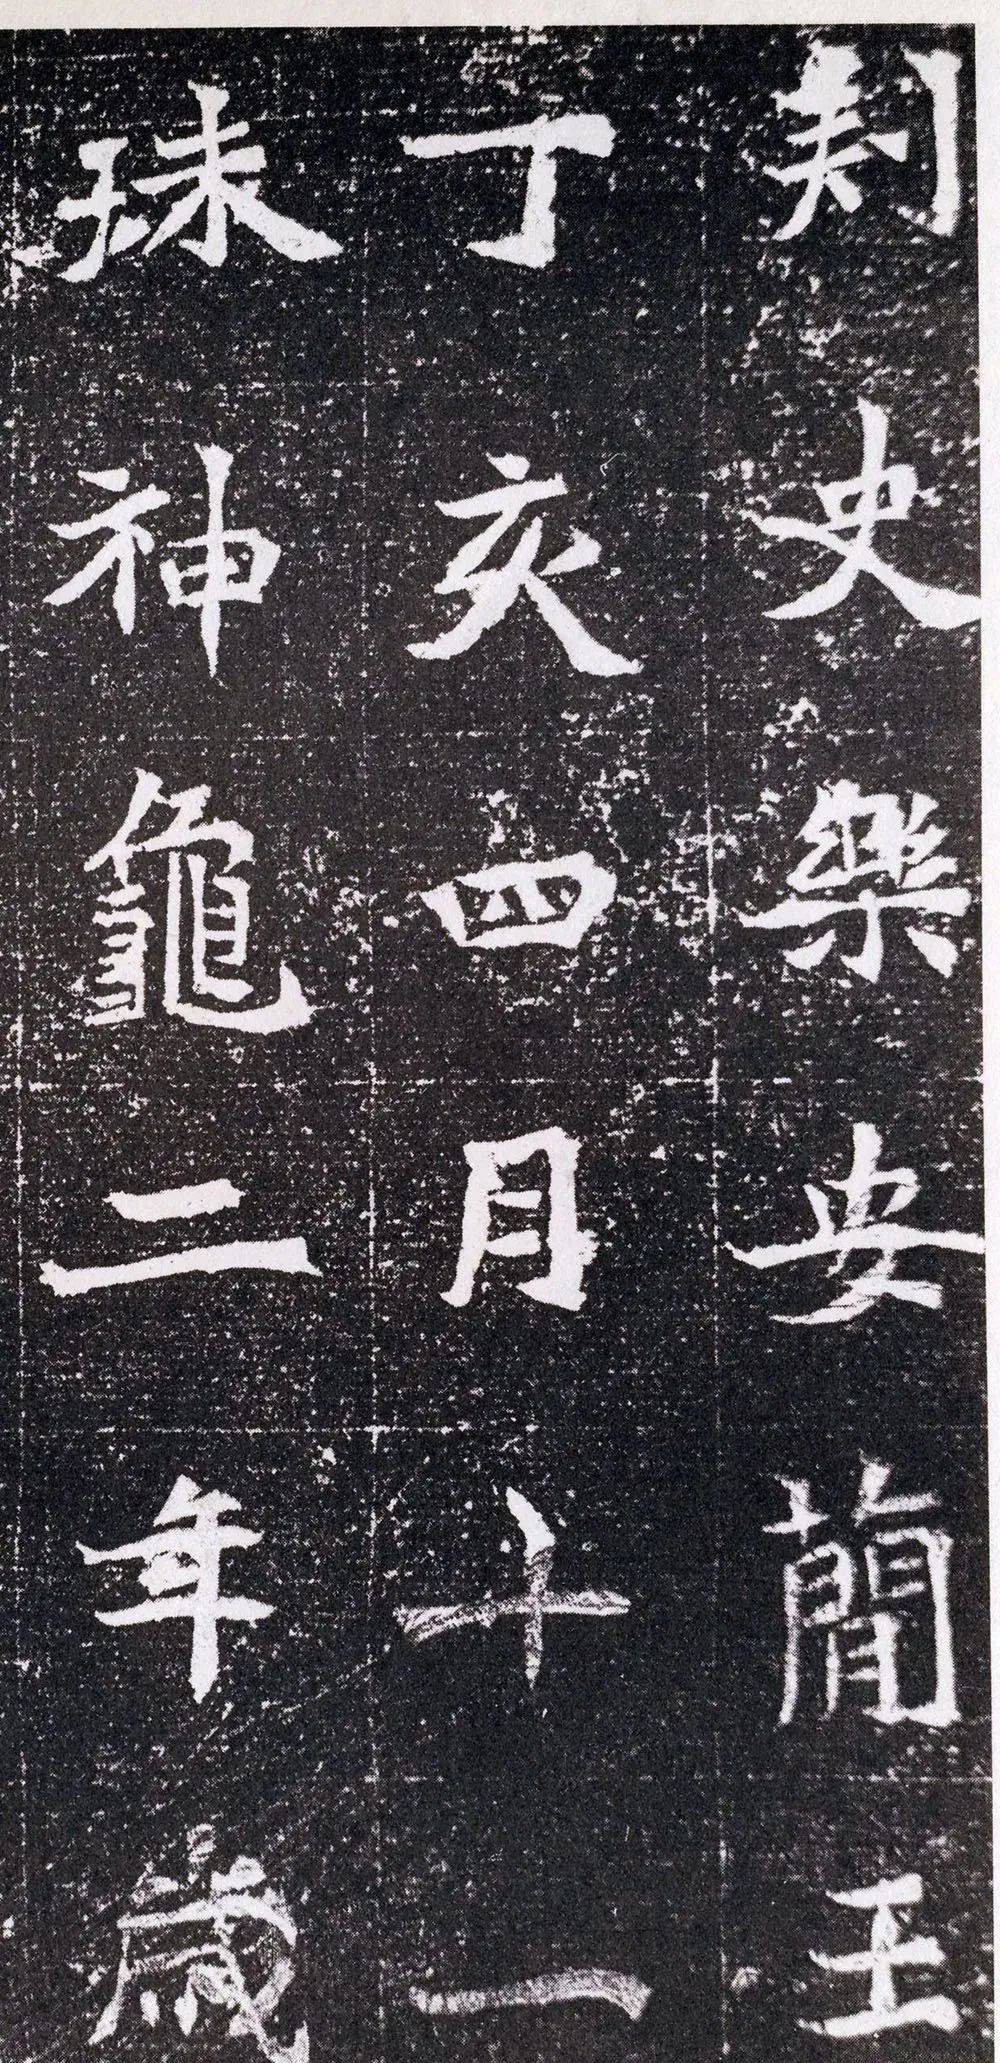 刾史樂安簡王
丁亥四月十一
珠神龜二年歲